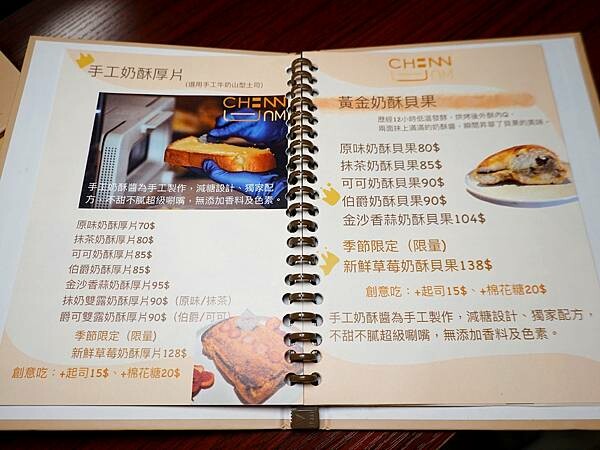 手工奶酥厚片
(選用手工牛奶山型土司)
CHENN
JAM
手工奶酥醬為手工製作，減糖設計、獨家配
方，不甜不膩超級唰嘴，無添加香料及色素。
原味奶酥厚片70$
抹茶奶酥厚片80$
可可奶酥厚片85$
伯爵奶酥厚片85$
金沙香蒜奶酥厚片95$
抹奶雙露奶酥厚片90$（原味/抹茶）
爵可雙露奶酥厚片90$（伯爵/可可）
季節限定（限量）
新鮮草莓奶酥厚片128$
創意吃：+起司15$、+棉花糖20$
CHENN
JAM
黃金奶酥貝果
歷經12小時低溫發酵，烘烤後外酥內Q，
兩面抹上滿滿的奶酥醬，瞬間昇華了貝果的美味。
原味奶酥貝果80$
抹茶奶酥貝果85$
可可奶酥貝果90$
伯爵奶酥貝果90$
金沙香蒜奶酥貝果104$
季節限定（限量）
新鮮草莓奶酥貝果138$
創意吃：+起司15$、+棉花糖20$
手工奶酥醬為手工製作，減糖設計、獨家配方，
不甜不膩超級唰嘴，無添加香料及色素。